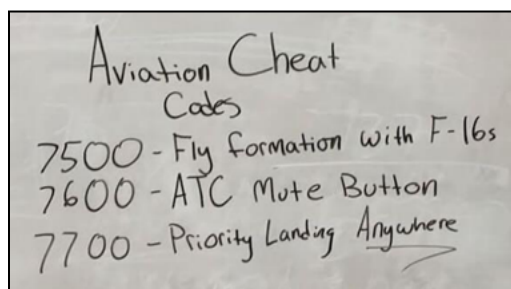 Aviation Cheat
Codes
7500 - Fly formation with F-16s
7600 - ATC Mute Button
7700 - Priority Landing Anywhere